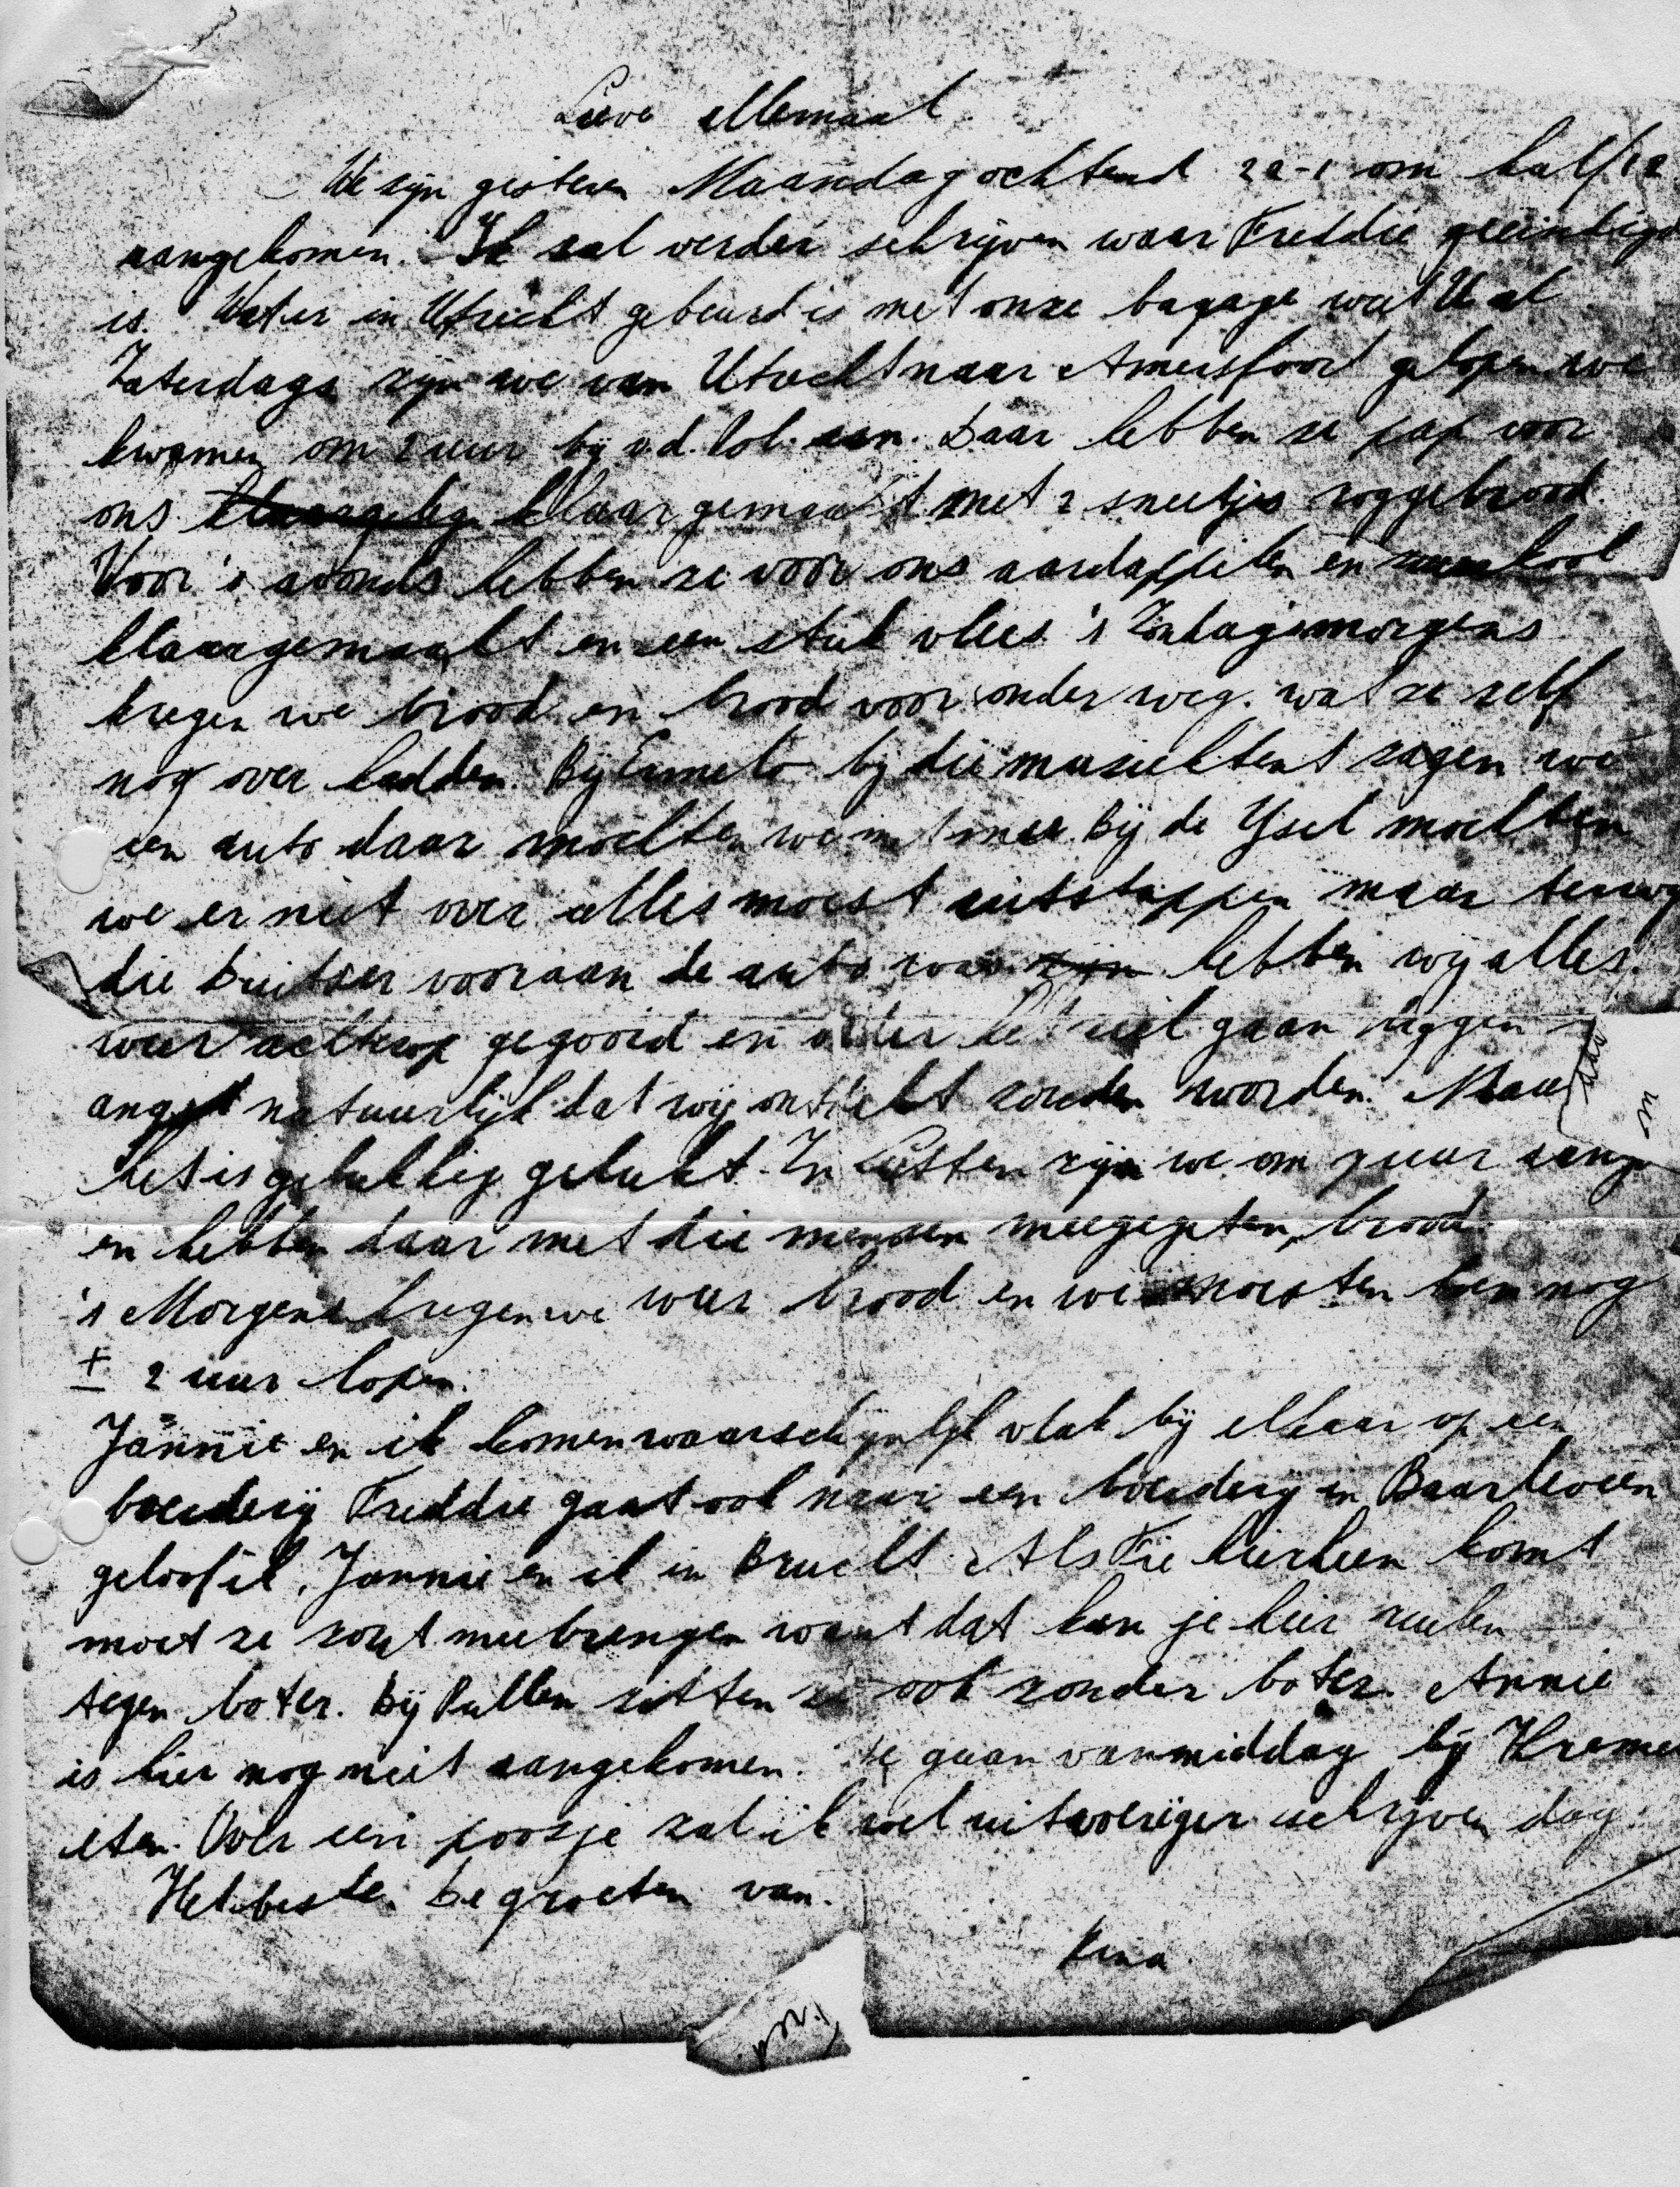 Lieve allemaal
We zijn gisteren Maandagochtend 22-1 om half 12
aangekomen. Ik zal verder schrijven waar Freddie geëindigd
is. Wat er in Utrecht gebeurd is met onze bagage weet U al
Zaterdags zijn we van Utrecht naar Amersfoort gelopen we
kwamen om 2 uur bij v.d. Pol aan. Daar hebben ze pap voor
ons klaargemaakt met 2 sneetjes roggebrood.
Voor 's avonds hebben ze voor ons aardappelen en kool
klaargemaakt en een stuk vlees. 's Zondagsmorgens
kregen we brood en brood voor onderweg. wat ze zelf
nog over hadden. Bij Ermelo bij die muziektent zagen we
een auto daar mochten we met mee. Bij de Ysel mochten
we er niet over alles moest uitstappen maar terwijl
die Duitser vooraan de auto was hebben wij alles
weer achterop gegooid en onder het zeil gaan liggen
angst natuurlijk dat wij ontdekt zouden worden. Maar
het is gelukkig gelukt. In Lutten zijn we om 7 uur aange
en hebben daar met die mensen meegegeten, brood.
's Morgens kregen we weer brood en we moesten toen nog
± 2 uur lopen.
Jannie en ik komen waarschijnlijk vlak bij elkaar op een
boerderij Freddie gaat ook naar een boerderij in Baarleveen
geloof ik. Jannie en ik in Brucht. Als Fie hierheen komt
moet ze zout meebrengen want dat kan je hier ruilen
tegen boter. Bij Pullen zitten ze ook zonder boter. Annie
is hier nog niet aangekomen. We gaan vanmiddag bij Kremer
eten. Over een poosje zal ik wel uitvoeriger schrijven dag.
Het beste begroeten van.
Rina